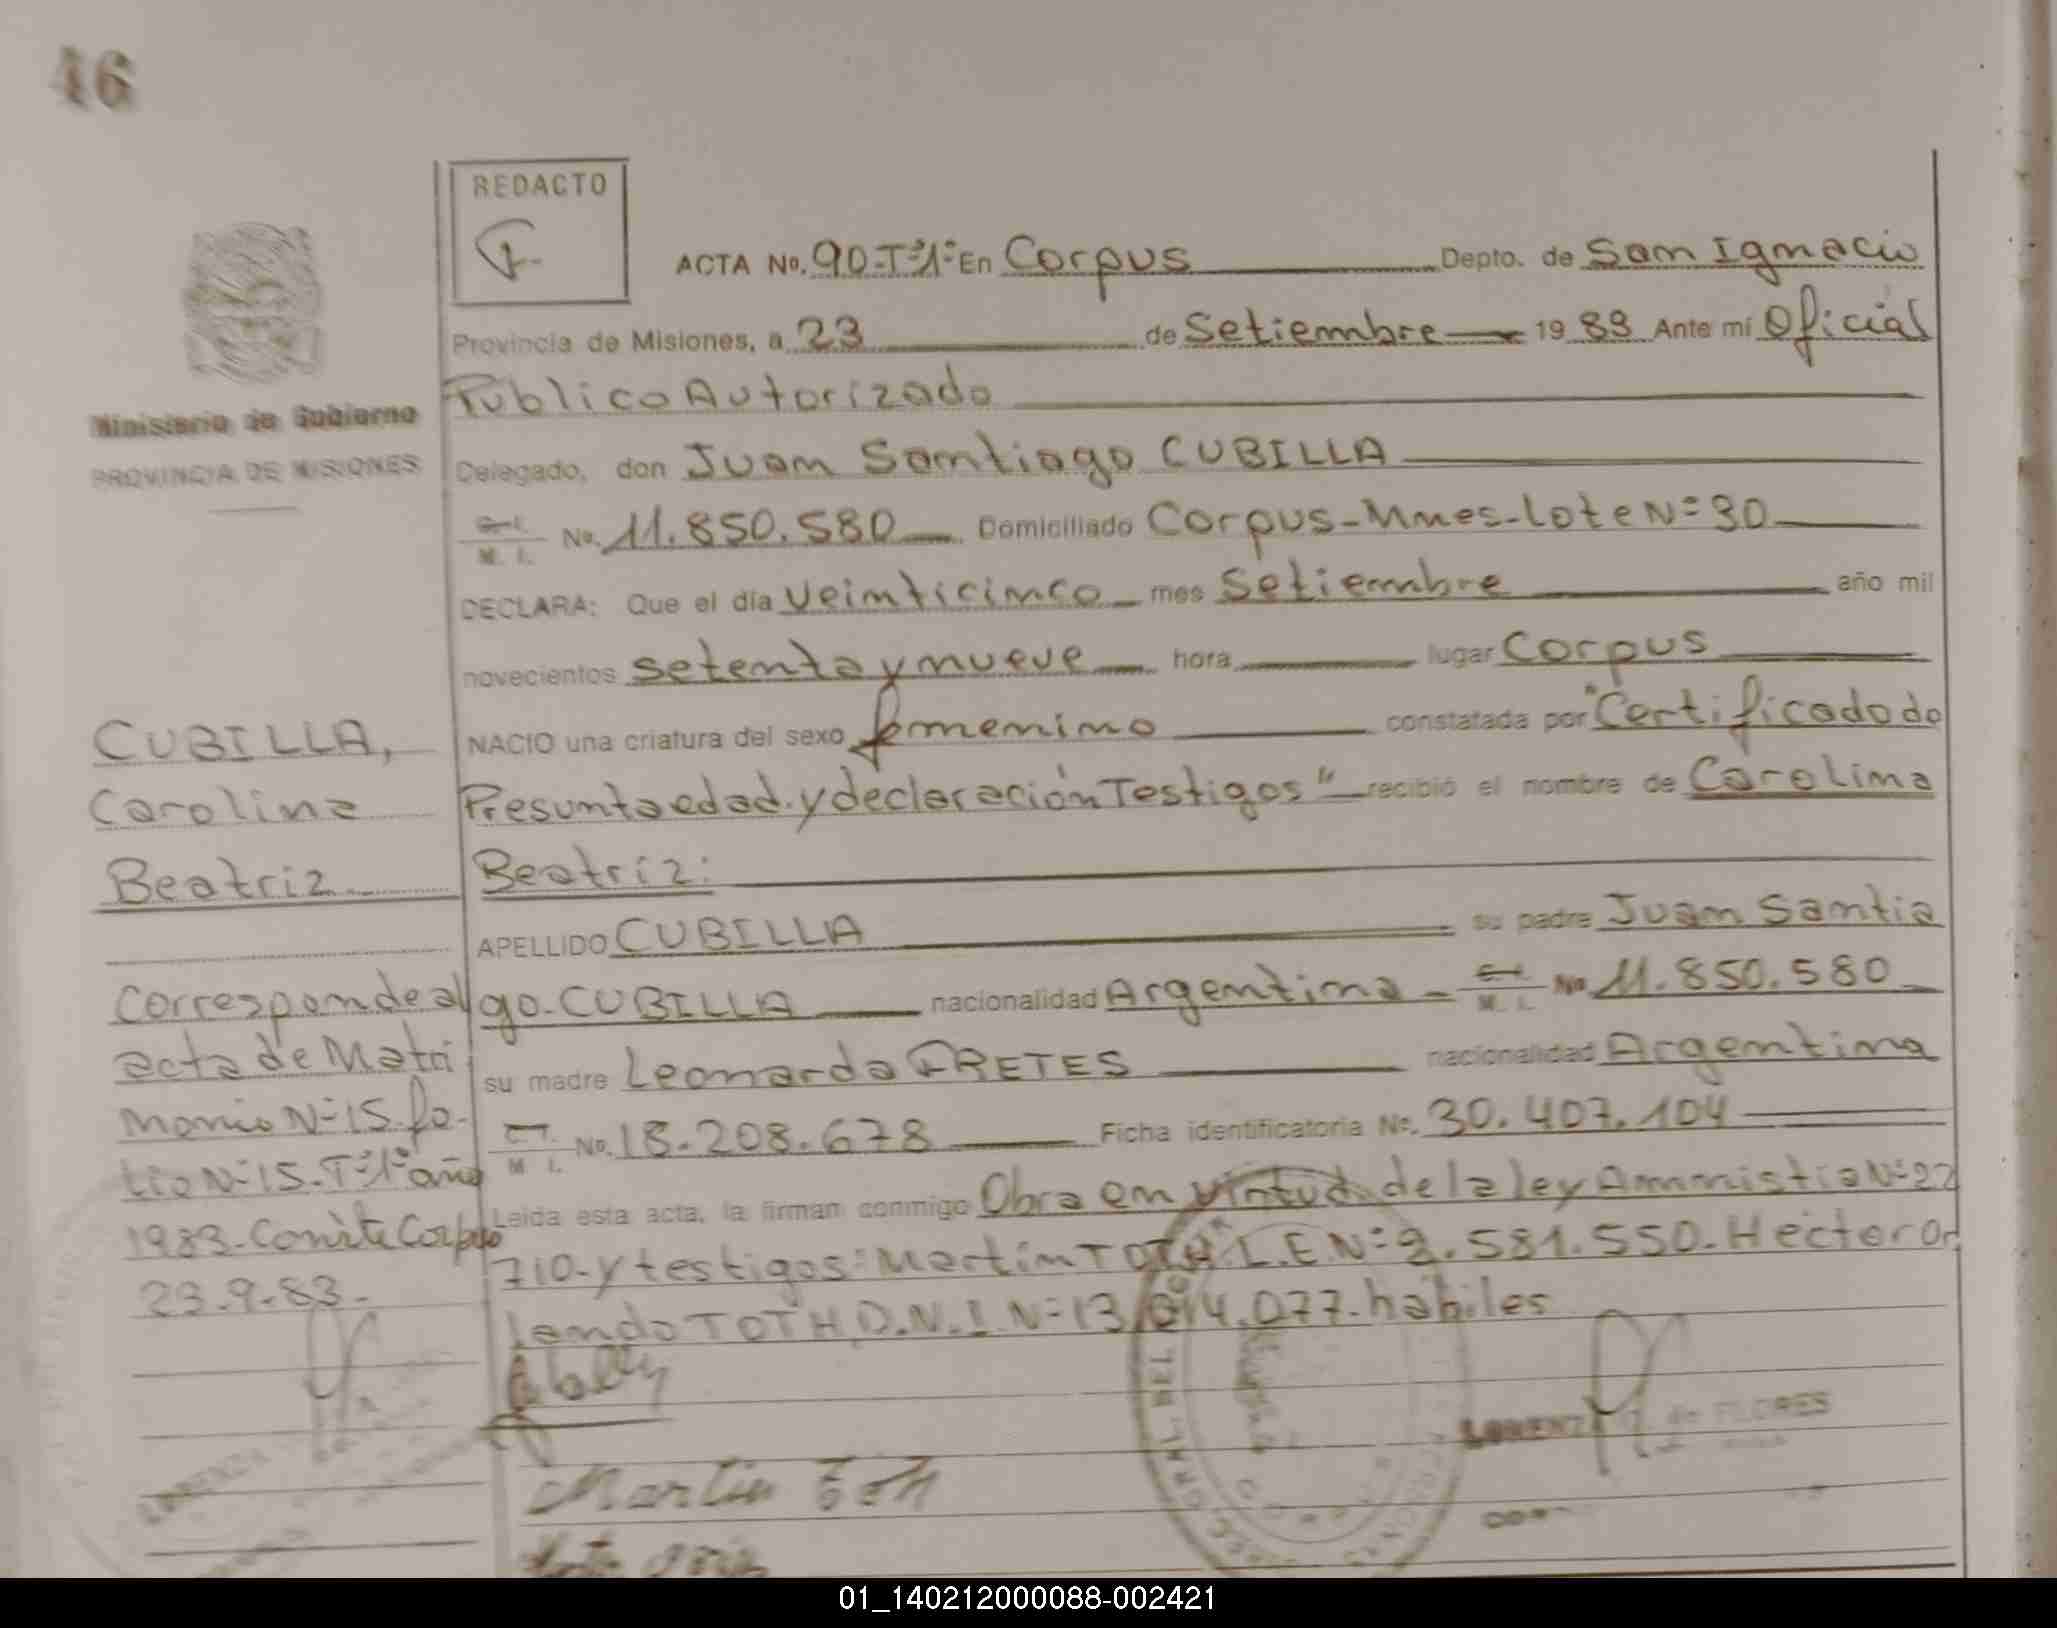 46
REDACTO
ACTA No. 90-Tº1º En Corpus Depto. de San Ignacio
Provincia de Misiones, a 23 de Setiembre 1983 Ante mí Oficial
Publico Autorizado
Ministerio de Gobierno
PROVINCIA DE MISIONES
Delegado, don Juan Santiago CUBILLA
C. I. / M. I. No. 11.850.580 Domiciliado Corpus-Mnes-Lote Nº 30
DECLARA: Que el día veinticinco mes Setiembre año mil
novecientos setenta y nueve hora lugar Corpus
NACIO una criatura del sexo femenino constatada por "Certificado de
Presunta edad y declaración Testigos" recibió el nombre de Carolina
Beatriz.
APELLIDO CUBILLA su padre Juan Santia
go CUBILLA nacionalidad Argentina - C. I. / M. I. No 11.850.580
su madre Leonarda FRETES nacionalidad Argentina
C. I. / M. I. No. 18.208.678 Ficha identificatoria No. 30.407.104
Leída esta acta, la firman conmigo Obra en virtud de la ley Ammistia Nº 22
710-y testigos: Martin TOTH L.E Nº 581.550-Hector Or
lando TOTH D.N.I Nº 13 077-habiles
CUBILLA,
Carolina
Beatriz
Corresponde al
acta de Matri
monio Nº 15-fo-
lio Nº 15-Tº1º año
1983-Conste Corpus
23-9-83-
Martin Toth
de FLORES
01_140212000088-002421